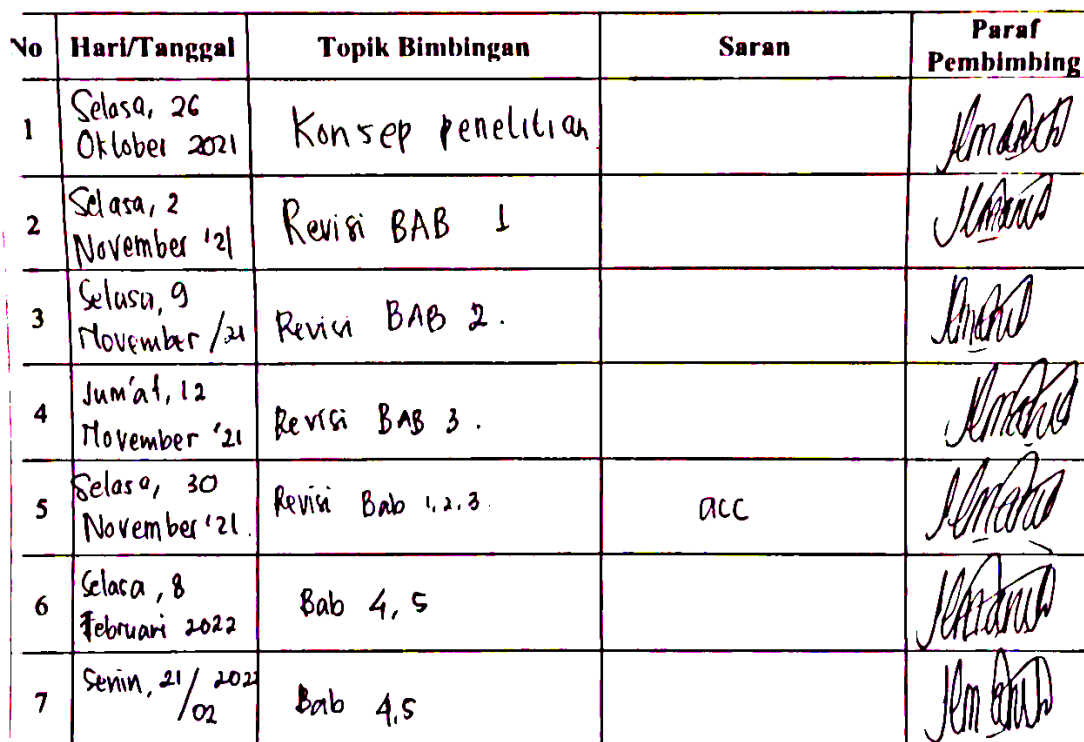 No Hari/Tanggal Topik Bimbingan Saran Paraf
Pembimbing
1 Selasa, 26
Oktober 2021 Konsep penelitian
2 Selasa, 2
November '21 Revisi BAB 1
3 Selasa, 9
November /21 Revisi BAB 2.
4 Jum'at, 12
November '21 Revisi BAB 3.
5 Selasa, 30
November '21. Revisi Bab 1,2,3. acc
6 Selasa, 8
Februari 2022 Bab 4, 5
7 Senin, 21/02 2022 Bab 4,5